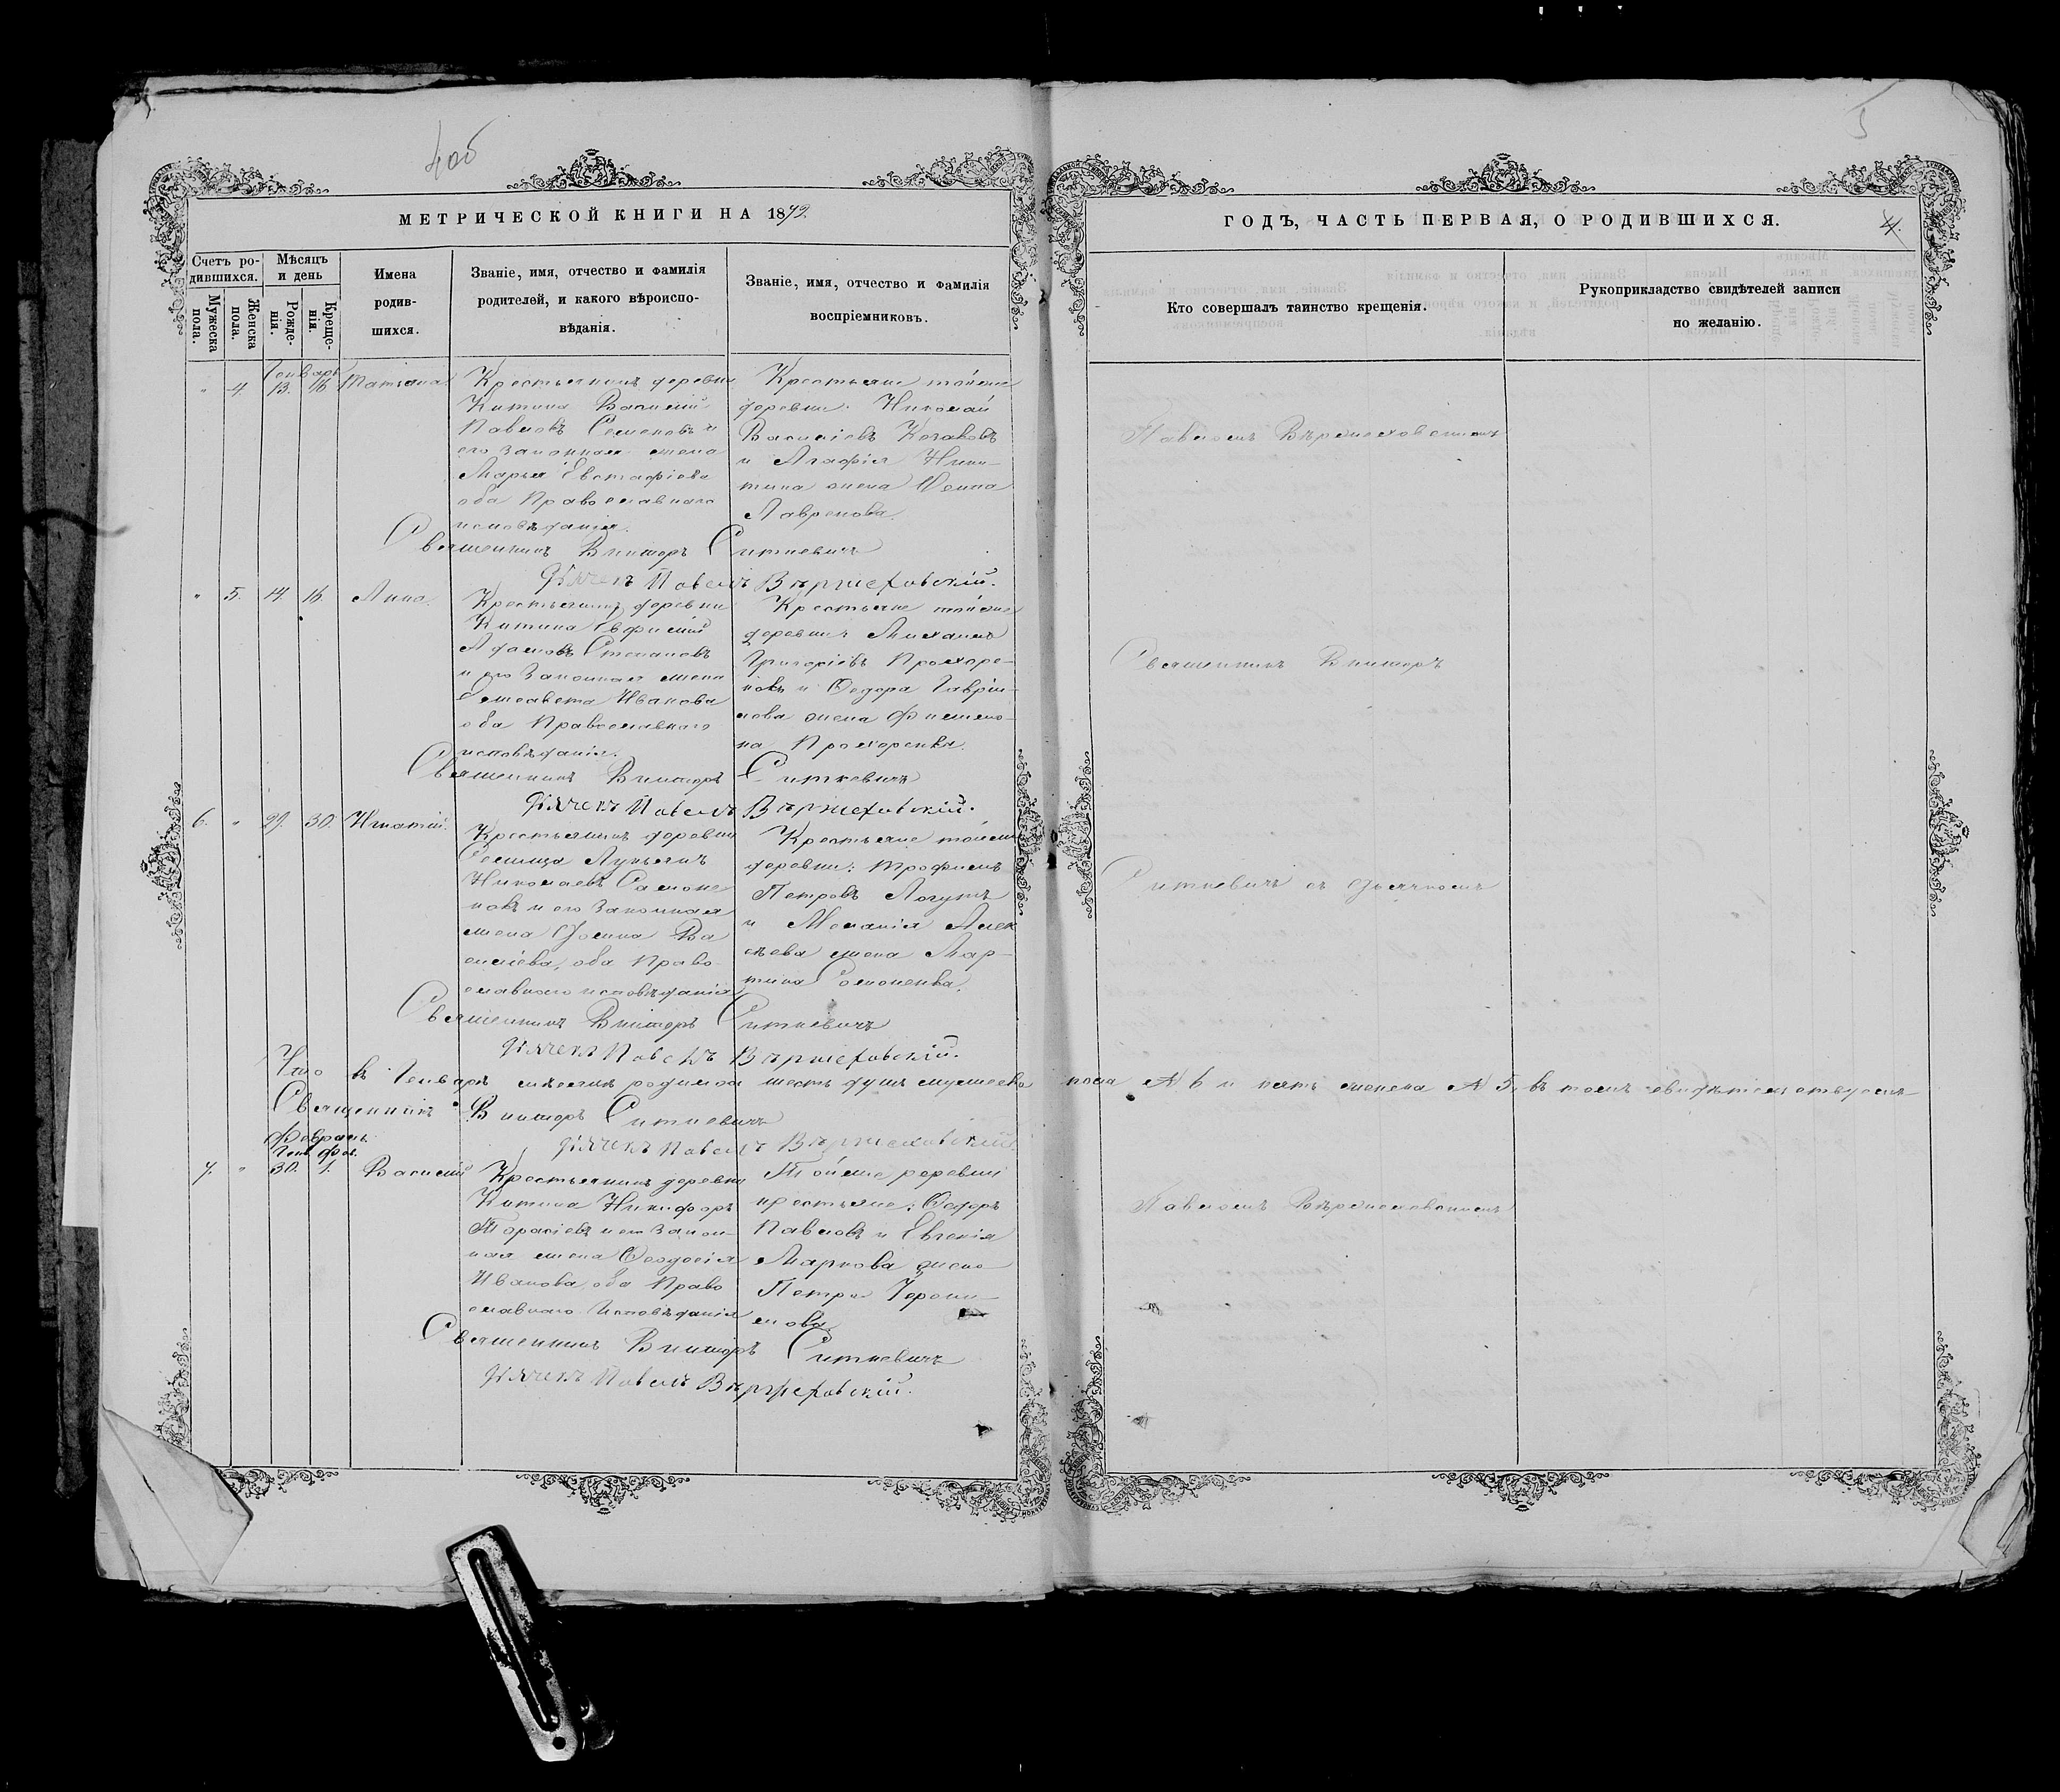 4об
5
МЕТРИЧЕСКОЙ КНИГИ НА 1879.
ГОДЪ, ЧАСТЬ ПЕРВАЯ, О РОДИВШИХСЯ.
4.
Счетъ ро-
дившихся.
Мужеска пола.
Женска пола.
Мѣсяцъ
и день
Рожде-
нія.
Креще-
нія.
Имена
родив-
шихся.
Званіе, имя, отчество и фамилія
родителей, и какого вѣроиспо-
вѣданія.
Званіе, имя, отчество и фамилія
воспріемниковъ.
Кто совершалъ таинство крещенія.
Рукоприкладство свидѣтелей записи
по желанію.
Генварь
" 4. 13. 16. Татіана
Крестьянинъ деревни
Китина Василій
Павловъ Семеновъ и
его законная жена
Марья Евстафіева
оба Православнаго
исповѣданія.
Крестьяне тойже
деревни: Николай
Василіевъ Козаковъ
и Агафія Ники-
тина жена
Лавренова.
Священникъ Викторъ Ситкевичъ
Дячекъ Павелъ Вѣржеховскій.
" 5. 14. 16. Анна.
Крестьянинъ деревни
Китина
Степановъ
и его Законная жена
Елисавета Иванова
оба Православнаго
исповѣданія.
Крестьяне тойже
деревни Михаилъ
Григоріевъ Прохоре-
нковъ и Федора Гаврии-
лова жена Филимо-
на Прохоренка.
Священникъ Викторъ Ситкевичъ
Дячекъ Павелъ Вѣржеховскій.
6. " 29. 30. Игнатій.
Крестьянинъ деревни
Лукьянъ
Николаевъ
и его Законная
жена Ва
силіева, оба Право
славнаго исповѣданія
Крестьяне тойже
деревни: Трофимъ
Петровъ
и Меланія Алек
сѣева жена Мар-
тина
Священникъ Викторъ Ситкевичъ
Дячекъ Павелъ Вѣржеховскій.
Что въ Генварѣ мѣсяцѣ родилось шесть душъ мужеска пола № 6 и пять женска № 5, въ томъ свидѣтельствуемъ
Священникъ Викторъ Ситкевичъ
Дячекъ Павелъ Вѣржеховскій.
Февраль
Ген. Фев.
7. " 30. 1. Василій
Крестьянинъ деревни
Китина Никифоръ
Тарасіевъ и его Закон-
ная жена Феодосія
Иванова, оба Право
славнаго Исповѣданія
Тойже деревни
крестьяне: Федоръ
Павловъ и Евгенія
Маркова жена
Петра
Священникъ Викторъ Ситкевичъ
Дячекъ Павелъ Вѣржеховскій.
Павломъ Вѣржеховскимъ
Священникъ Викторъ
Ситкевичъ съ дьячкомъ
Павломъ Вѣржеховскимъ